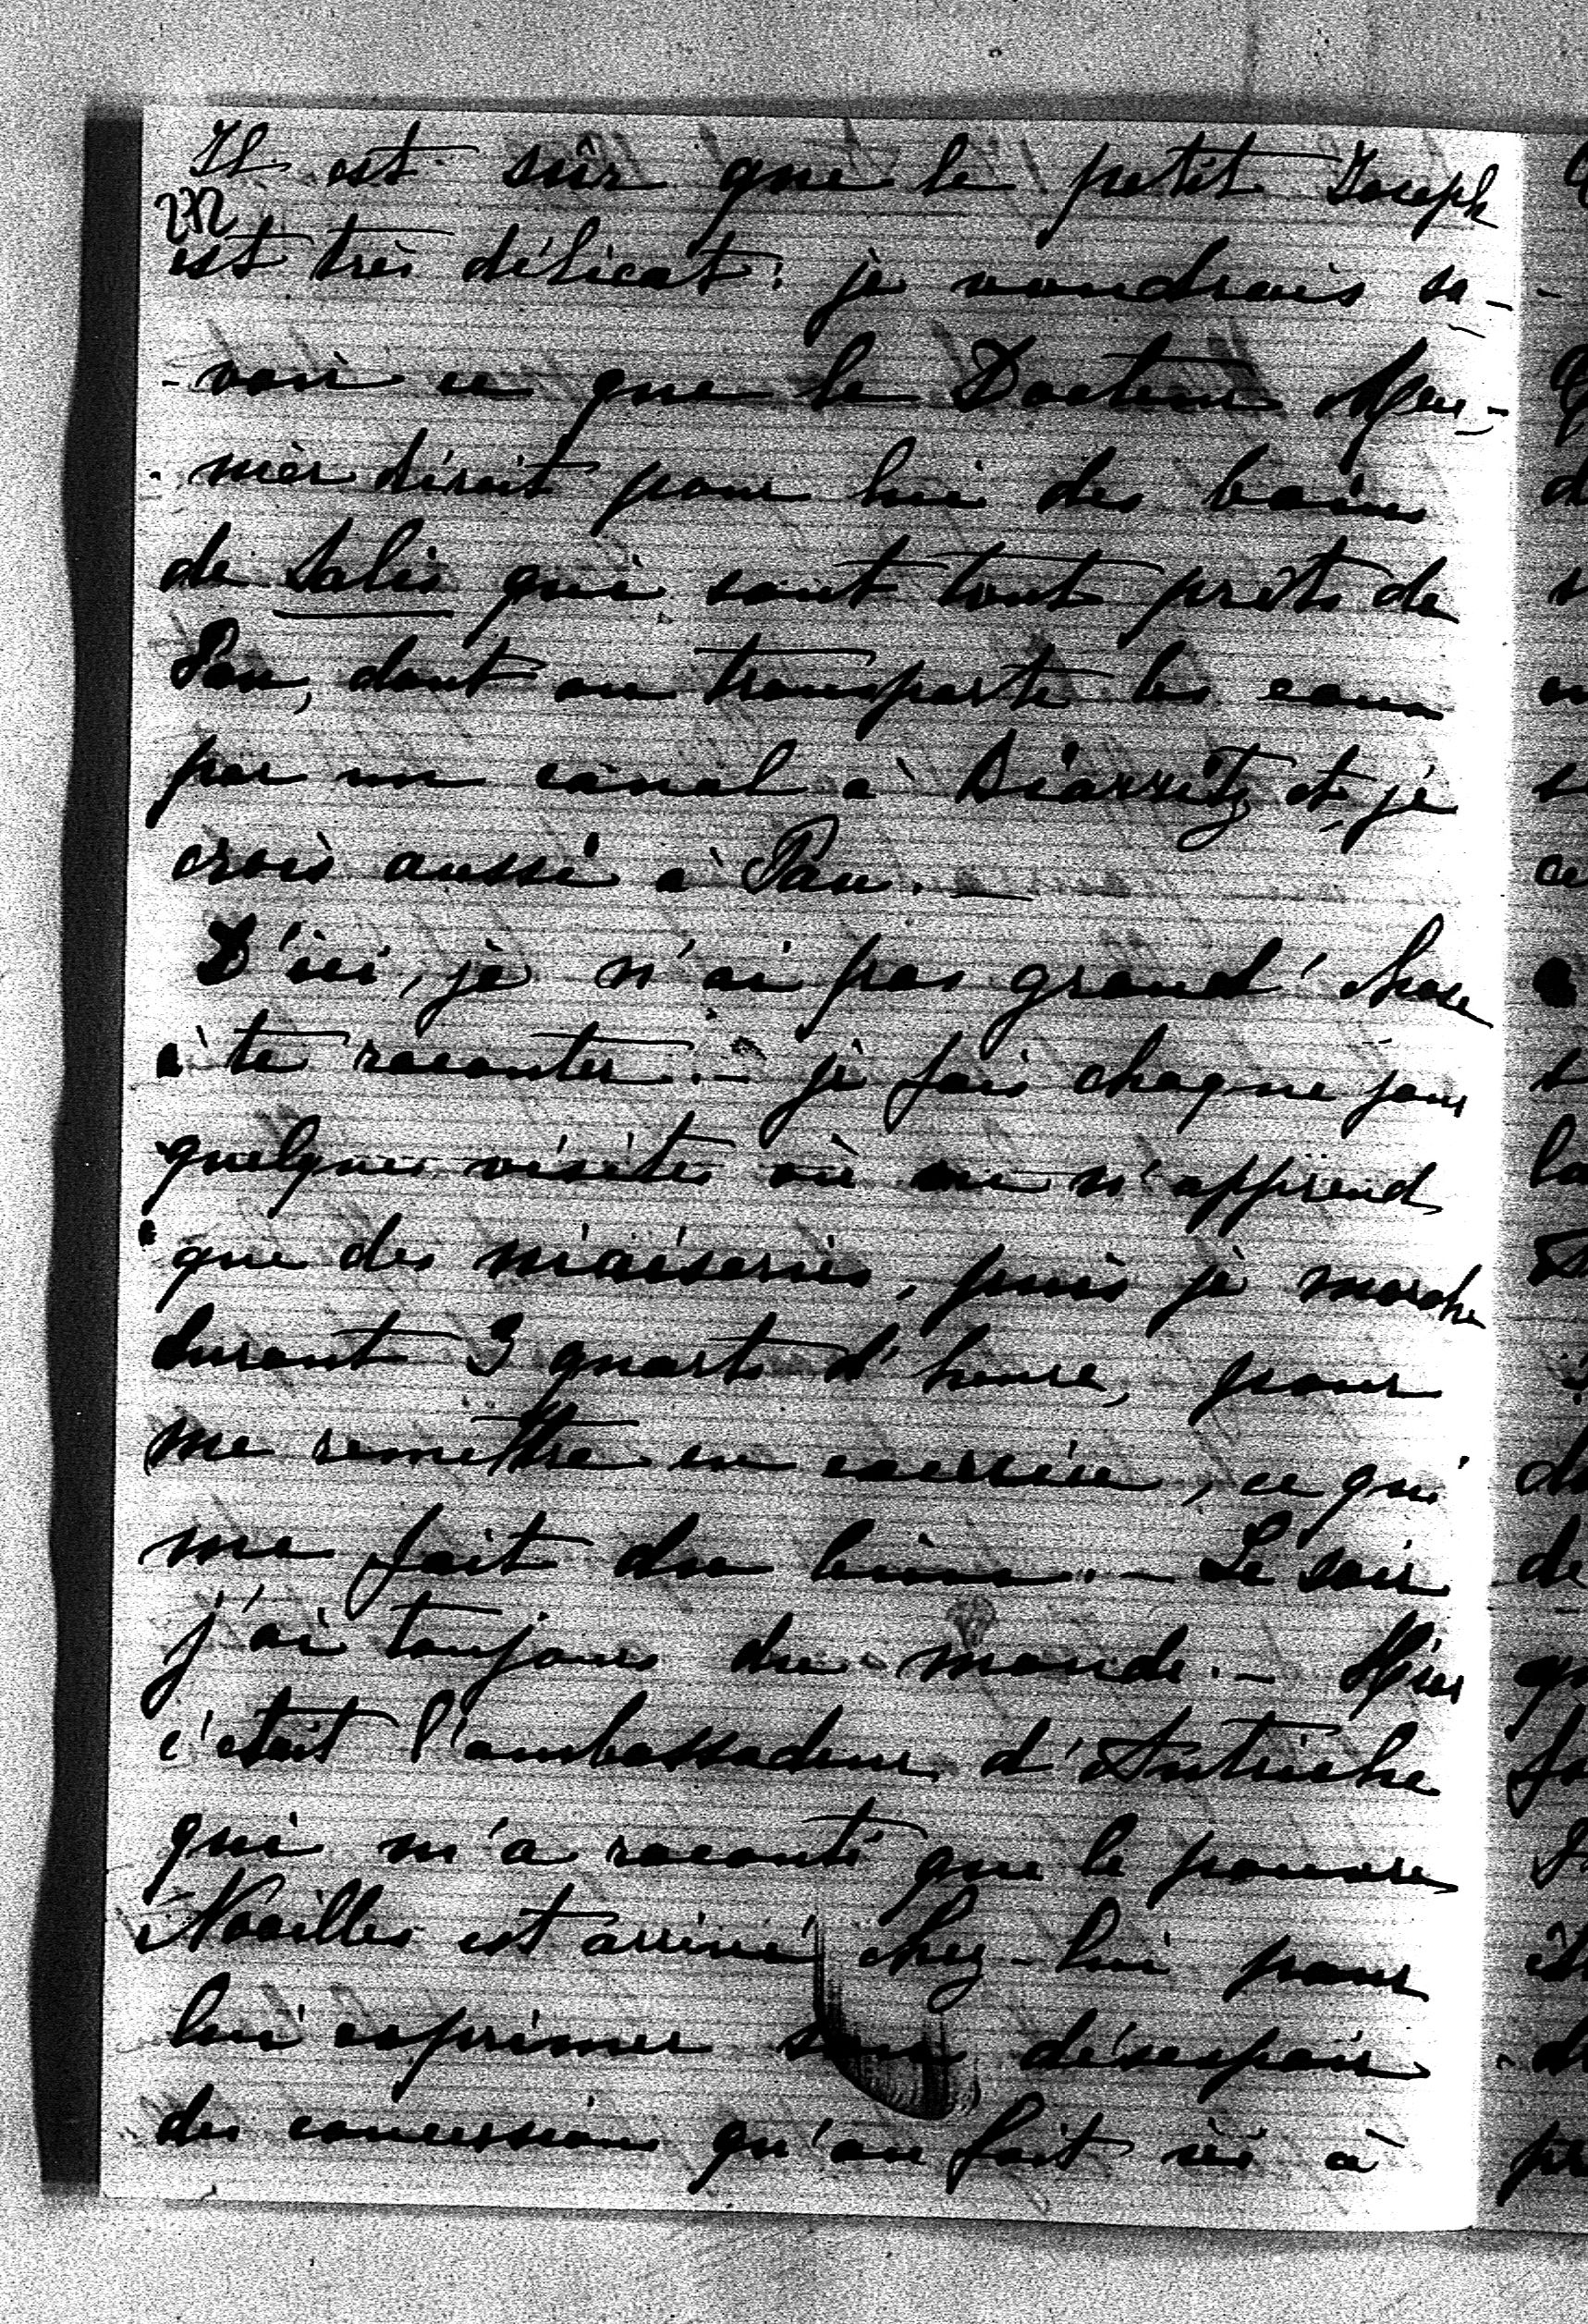 Il est sûr que le petit Joseph
272
est très délicat: je voudrais sa-
-voir ce que le Docteur Meu-
-nier dirait pour lui des bains
de Salies qui sont tout prêts de
Pau, dont on transporte les eaux
par un canal à Biarritz et je
crois aussi à Pau. _
D'ici, je n'ai pas grand'chose
à te raconter. - je fais chaque jour
quelques visites où on n'apprend
que des niaiseries, puis je marche
durant 3 quarts d'heure, pour
me remettre en exercice, ce qui
me fait du bien. - Le soir
j'ai toujours du monde. - Hier
c'était l'ambassadeur d'Autriche
qui m'a raconté que le pauvre
Noailles est arrivé chez-lui pour
lui exprimer son désespoir
des concessions qu'on fait ici à